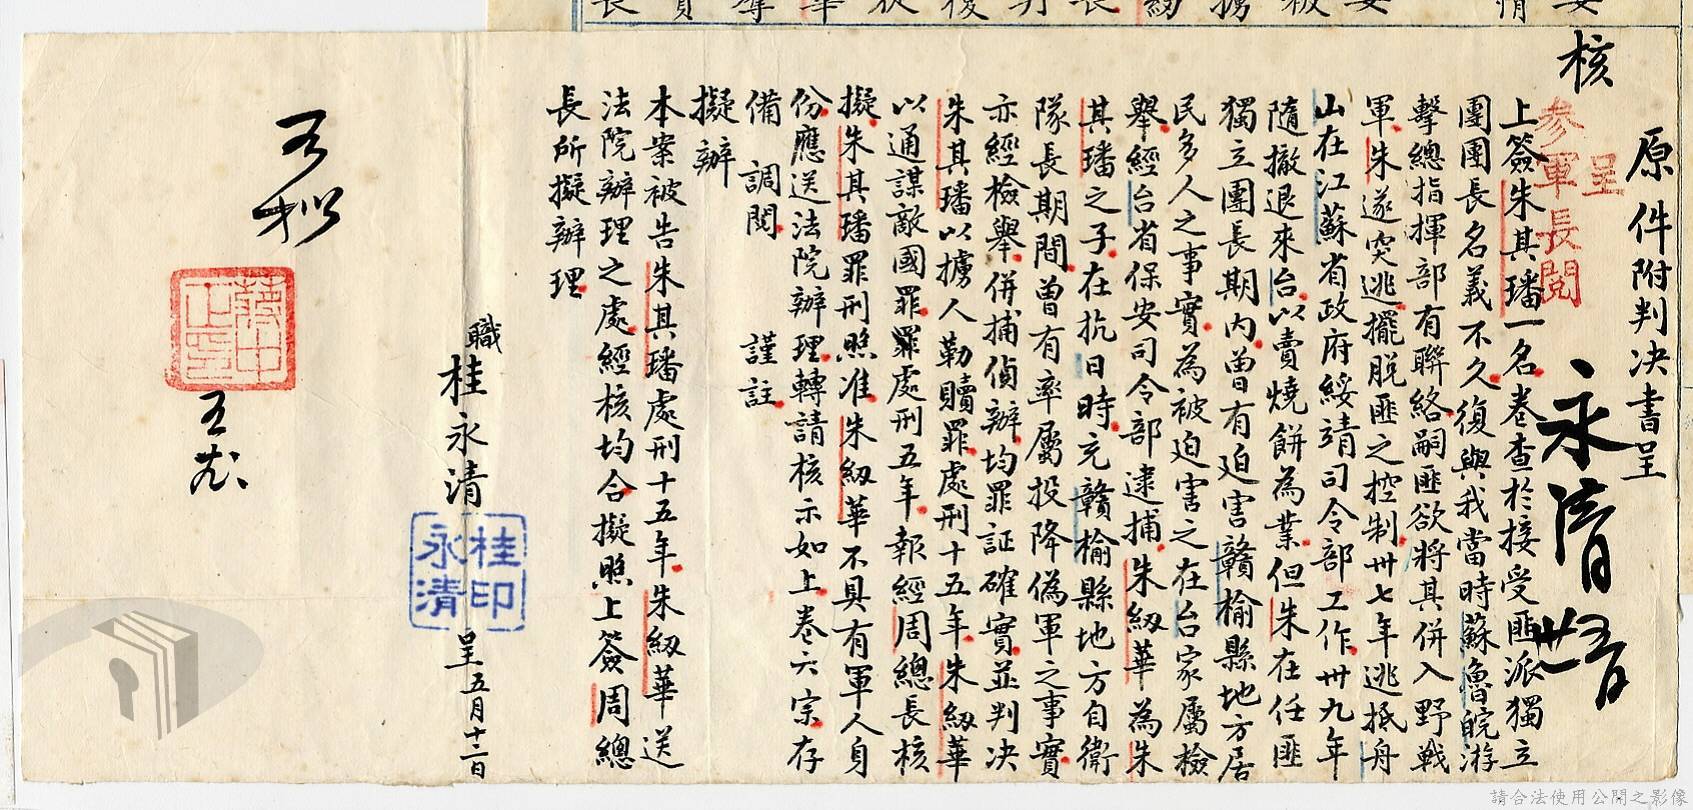 核
呈
參軍長閱
原件附判決書呈
永清
上簽朱其璠一名卷查於接受匪派獨立
團團長名義不久復與我當時蘇魯皖游
擊總指揮部有聯絡嗣匪欲將其併入野戰
軍朱遂突逃擺脫匪之控制卅七年逃抵舟
山在江蘇省政府綏靖司令部工作卅九年
隨撤退來台以賣燒餅為業但朱在任匪
獨立團長期內曾有迫害贛榆縣地方居
民多人之事實為被迫害之在台家屬檢
舉經台省保安司令部逮捕朱紉華為朱
其璠之子在抗日時充贛榆縣地方自衛
隊長期間曾有率屬投降偽軍之事實
亦經檢舉併捕偵辦均罪証確實並判決
朱其璠以擄人勒贖罪處刑十五年朱紉華
以通謀敵國罪處刑五年報經周總長核
擬朱其璠罪刑照准朱紉華不具有軍人身
份應送法院辦理轉請核示如上卷六宗存
備調閱 謹註
擬辦
本案被告朱其璠處刑十五年朱紉華送
法院辦理之處經核均合擬照上簽周總
長所擬辦理
職桂永清
桂永清印
呈 五月十二日
蔣中正印
請合法使用公開之影像